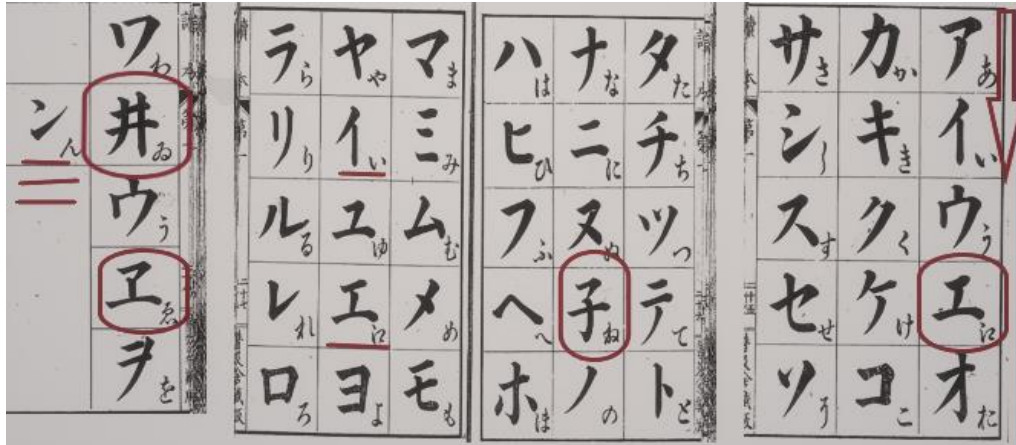 アあ イい ウう エ𛀁 オお
カか キき クく ケけ コこ
サさ シし スす セせ ソそ
タた チち ツつ テて トと
ナな ニに ヌぬ 子ね ノの
ハは ヒひ フふ ヘへ ホほ
マま ミみ ムむ メめ モも
ヤや イい ユゆ エ𛀁 ヨよ
ラら リり ルる レれ ロろ
ワわ 井ゐ ウう ヱゑ ヲを
ンん